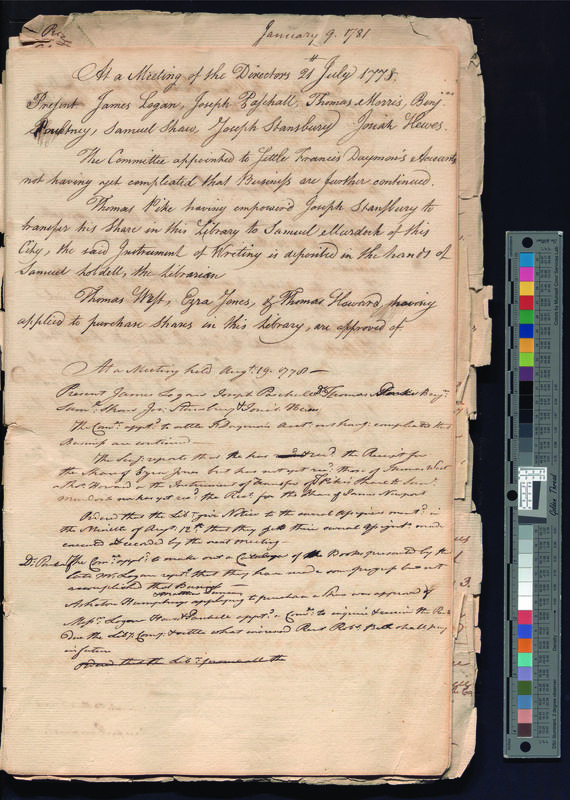 January 9. 1781
At a Meeting of the Directors 21st July 1778.
Present James Logan, Joseph Paschall, Thomas Morris, Benjn
Poultney, Samuel Shaw, Joseph Stansbury Josiah Hewes.
The Committee appointed to settle Francis Daymon's Accounts
not having yet compleated that Business are further continued.
Thomas Pike having empowerd Joseph Stansbury to
transfer his Share in this Library to Samuel Murdock of this
City, the said Instrument of Writing is deposited in the hands of
Samuel Lobdell, the Librarian
Thomas West, Ezra Jones, & Thomas Howard having
applied to purchase Shares in this Library, are approved of
At a Meeting held Augt. 19. 1778 —
Present James Logan Joseph Paschall Dr Thomas Parke Benjn.
Saml. Shaw Jos. Stansbury & Josia Hewes
The Comee. appd. to settle F Daymon's Acct. not having compleated that
Business are continued —
The Secy. reports that he has recd. the Receipt for
the Share of Ezra Jones but has not yet recd. those of Thomas West
& Thos. Howard or the Instrument of Transfer of T Pike's Share to Saml.
Murdock nor has yet recd. the Rect. for the Share of James
Orderd that the Liby. give Notice to the several
the Minute of Augt. 12th that they get their several Assignts. made
executed & recorded by the next meeting —
Dr. Parke The Come. appd. to make out a Catalogue of the Books presented by the
late Mr. Logan report that they have made some progress but not
accomplished that Business
Ashton Humphreys applying to purchase a Share was approved of
Messrs. Logan Hewes & Paschall appd. a Comee. to enquire & examine the Rent
Due the Liby. Compy. & settle what increasd Rent Robt. Bell shall pay
in future
Orderd that the Liby. all the